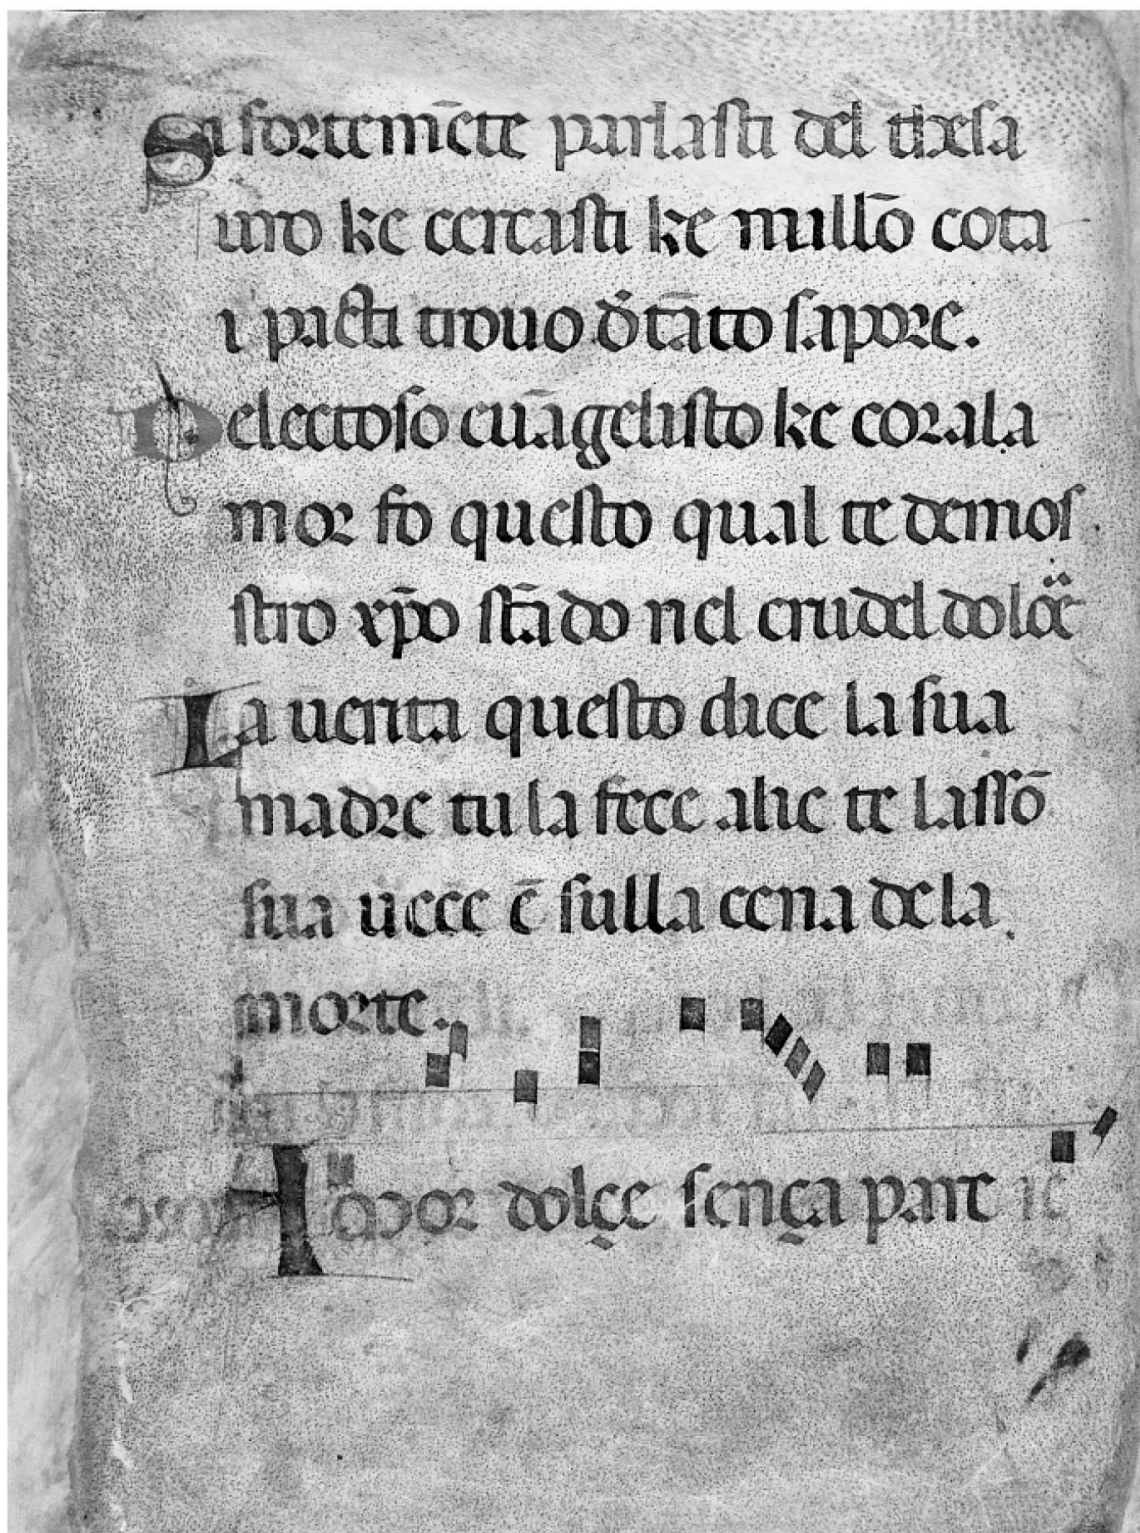 Si fortem̄ete parlasti del thesa
uro ke cercasti ke nullō cota
i pasti trouo d̄ tāto sapore.
Delectoso euāgelisto ke cor ala
mor fo questo qual te demos
stro xp̄o stādo nel crudel dolore
La uerita questo dice la sua
madre tu la fece a lie te lassō
sua uece ē sulla cena de la
morte.
dolçe sença part